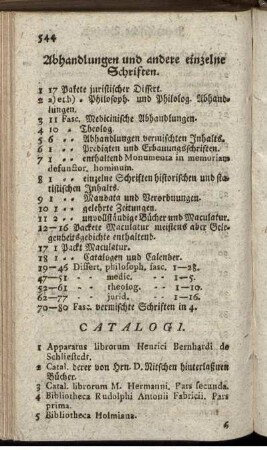 544
Abhandlungen und andere einzelne
Schriften.
1 17 Pakete juristischer Dissert.
2 a) et.b) = Philosoph. und Philolog. Abhand-
lungen.
3 11 Fasc. Medicinische Abhandlungen.
4 10 = Theolog.
5 6 = = Abhandlungen vermischten Inhalts.
6 1 = = Predigten und Erbauungsschriften.
7 1 = = enthaltend Monumenta in memoriam
defunctor. hominum.
8 1 = = einzelne Schriften historischen und sta-
tistischen Inhalts.
9 1 = = Mandata und Verordnungen.
10 1 = = gelehrte Zeitungen.
11 2 = = unvollständige Bücher und Maculatur.
12-16 Packete Maculatur meistens aber Gele-
genheitsgedichte enthaltend.
17 1 Packt Maculatur.
18 1 = = Catalogen und Calender.
19-46 Dissert. philosoph. fasc. 1-28.
47-51 = = medic. = = 1-5.
52-61 = = theolog. = = 1-10.
62-77 = = jurid. = = 1-16.
70-80 Fasc. vermischte Schriften in 4.
CATALOGI.
1 Apparatus librorum Henrici Bernhardi de
Schliestedt.
2 Catal. derer von Hrn. D. Nitschen hinterlaßnen
Bücher.
3 Catal. librorum M. Hermanni, Pars secunda.
4 Bibliotheca Rudolphi Antonii Fabricii, Pars
prima.
5 Bibliotheca Holmiana.
6